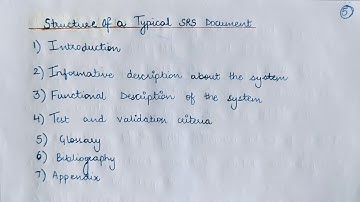 Structure Of a Typical SRS Document
5
1) Introduction
2) Informative description about the system
3) Functional Description of the system
4) Test and validation criteria
5) Glossary
6) Bibliography
7) Appendix